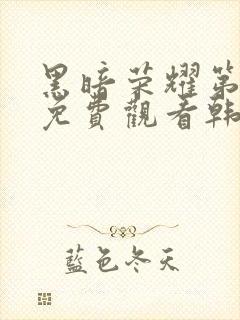 黑暗荣耀第
免費觀看韩
藍色冬天